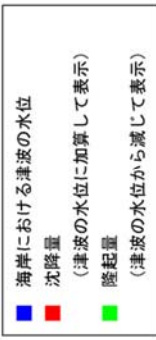 海岸における津波の水位
沈降量
（津波の水位に加算して表示）
隆起量
（津波の水位から減じて表示）